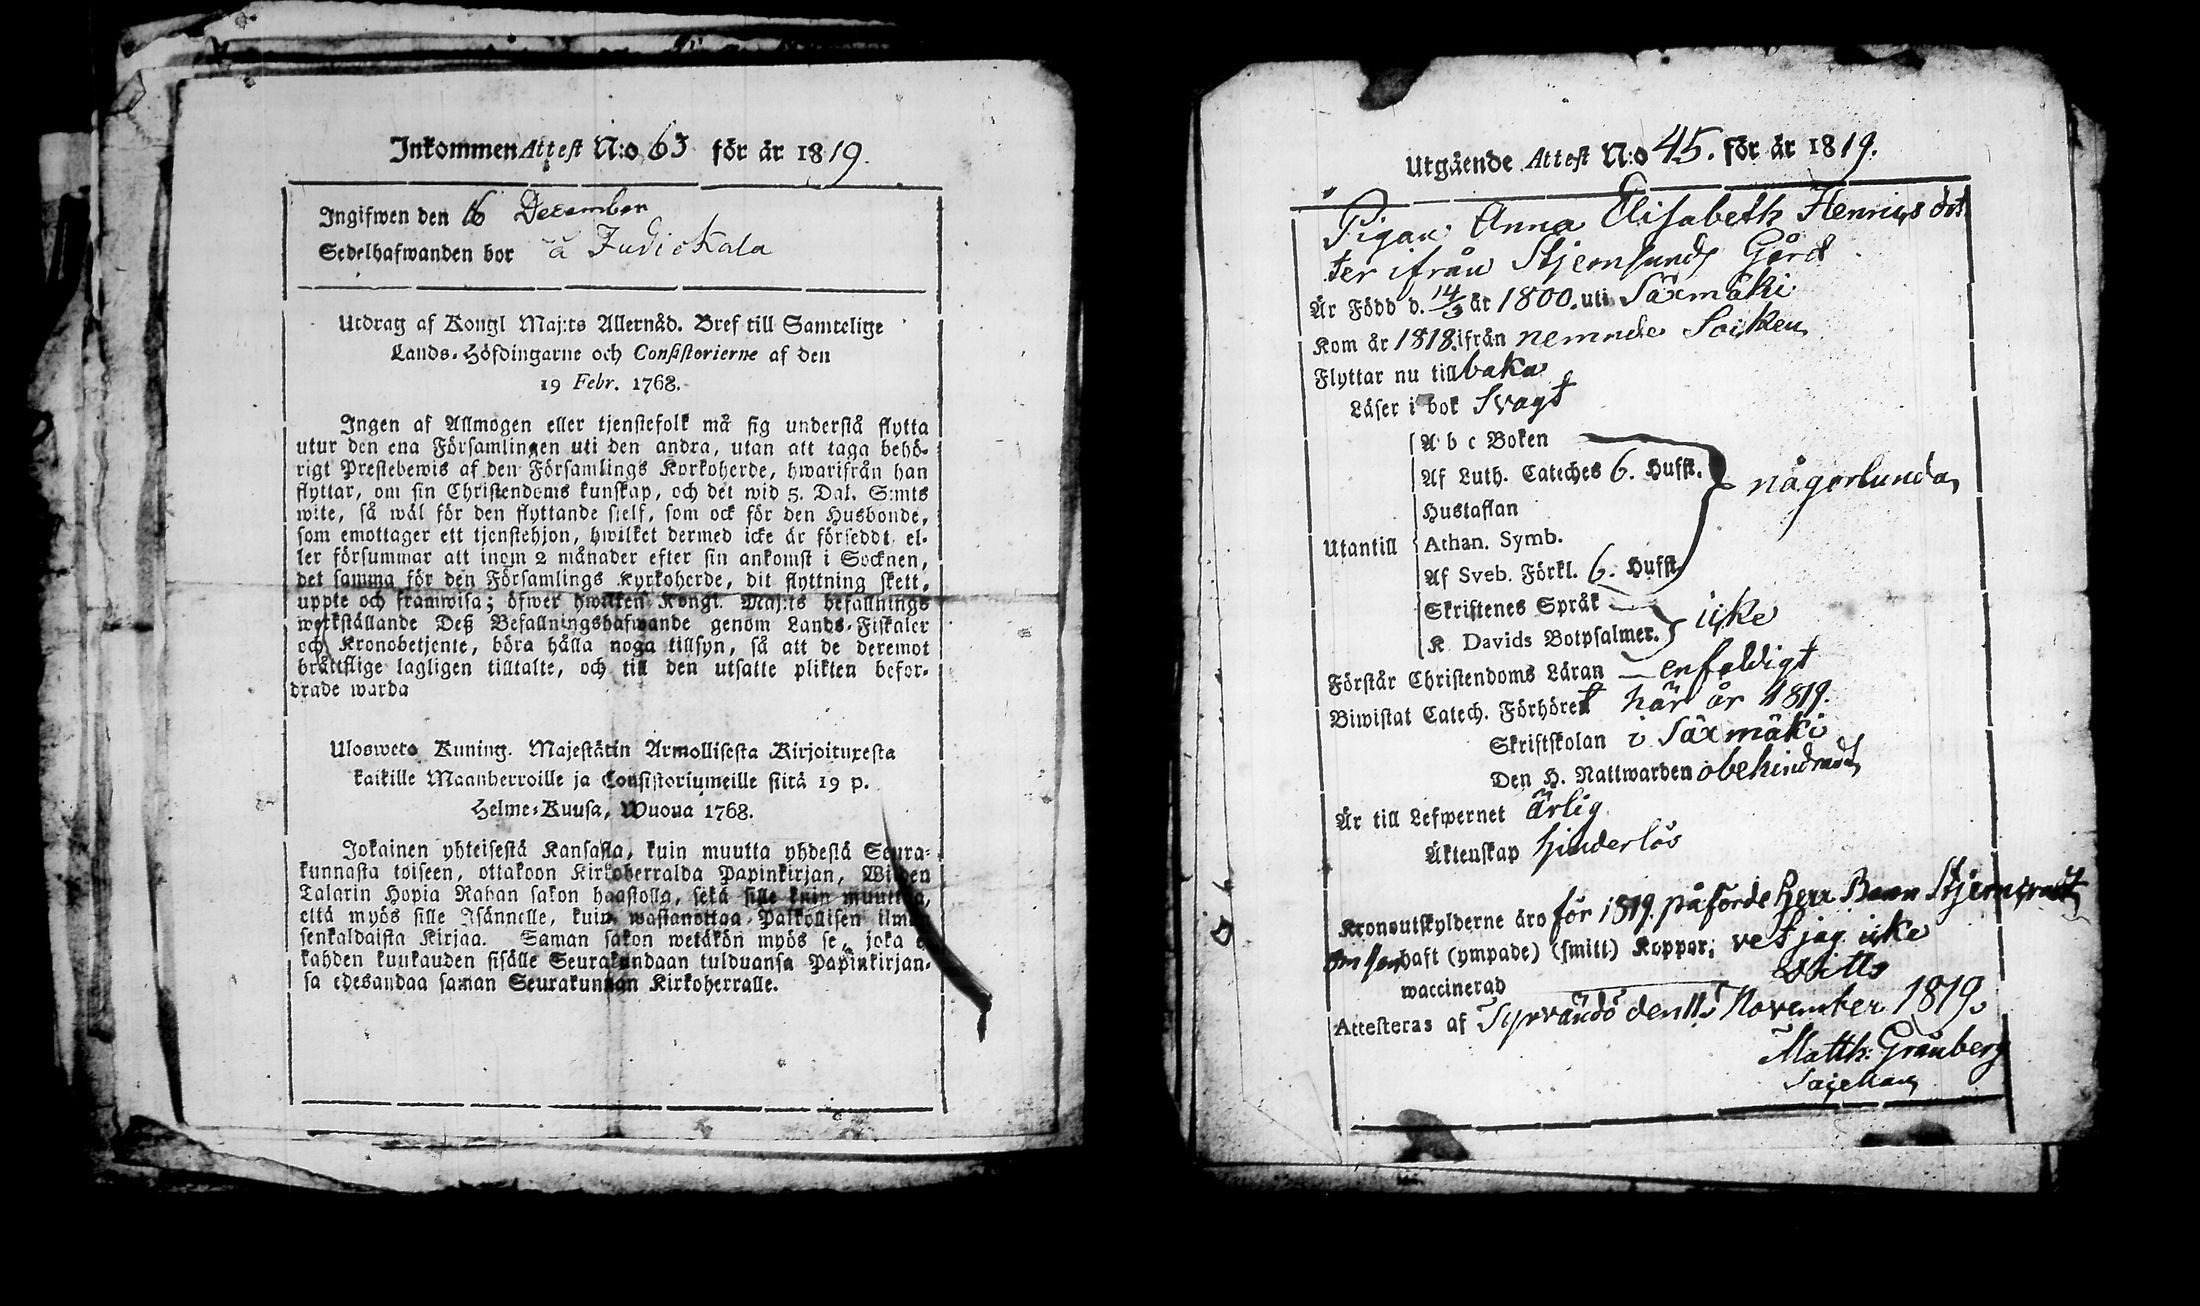 Inkommen Attest N:o 63 för är 1819.
Ingifwen den 16 December
Sedelhafwanden bor å Judickala
Utdrag af Kongl Maj:ts Allernåd. Bref till Samtelige
Lands-Höfdingarne och Consistorierne af den
19 Febr. 1768.
Ingen af Allmogen eller tjenstefolk må sig understå flytta
utur den ena Församlingen uti den andra, utan att taga behö-
rigt Prestebewis af den Församlings Korkoherde, hwarifrån han
flyttar, om sin Christendoms kunskap, och det wid 5. Dal. S:mts
wite, så wäl för den flyttande sielf, som ock för den Husbonde,
som emottager ett tjenstehjon, hwilket dermed icke är försedt, el-
ler försummar att inom 2 månader efter sin ankomst i Socknen,
det samma för den Församlings Kyrkoherde, dit flyttning skett,
uppte och framwisa; öfwer hwilken Kongl. Maj:ts befallnings
werkställande Deß Befallningshafwande genom Lands-Fiskaler
och Kronobetjente, böra hålla noga tillsyn, så att de deremot
bråttslige lagligen tilltalte, och till den utsatte plikten befor-
drade warda
Ulosweto Kuning. Majestätin Armollisesta Kirjoituxesta
kaikille Maanherroille ja Consistoriumeille siitä 19 p.
Helme-Kuusa, Wuona 1768.
Jokainen yhteisestä Kansasta, kuin muutta yhdestä Seura-
kunnasta toiseen, ottakoon Kirkoherralda Papinkirjan, Wiiden
Talarin Hopia Rahan sakon haastolla, sekä sille kuin muuttaa,
että myös sille Isännelle, kuin wastanottaa Palkollisen ilman
senkaldaista Kirjaa. Saman sakon wetäkön myös se, joka
kahden kuukauden sisälle Seurakundaan tulduansa Papinkirjan-
sa edesandaa saman Seurakunnan Kirkoherralle.
Utgående Attest N:o 45. för är 1819.
Pigan Anna Elisabeth Henricsdot
ter ifrån Stjernsunds Gård
Är Född d. 14/3 är 1800. uti Säxmäki
Kom är 1818. ifrån nemnde Socken
Flyttar nu till baka
Läser i bok svagt
A b c Boken
Af Luth. Cateches 6. Hufst. någorlunda
Hustaflan
Utantill Athan. Symb.
Af Sveb. Förkl. 6. Hufst.
Skriftenes Språk icke
K Davids Botpsalmer.
Förstår Christendoms Läran enfaldigt
Biwistat Catech. Förhöret här år 1819.
Skriftskolan i Säxmäki
Den H. Nattwarden obehindrad
Är till Lefwernet ärlig
Äktenskap hinderlös
Kronoutskylderne äro för 1819. påförde Herr
om hon haft (ympade) (smitt) Koppor; vet jag icke
waccinerad
Attesteras af Tyrvändö den 11 November 1819.
Matth: Granberg
Sacellan